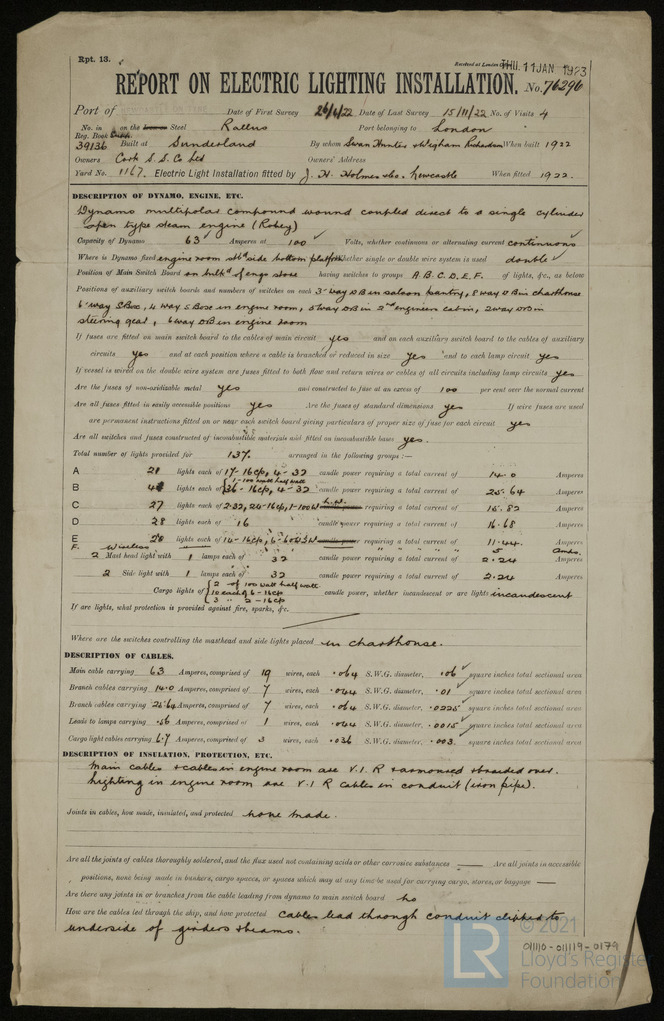 Rpt. 13.
Received at London Office THU. 11 JAN 1923
REPORT ON ELECTRIC LIGHTING INSTALLATION. No. 76296
Port of NEWCASTLE ON TYNE Date of First Survey 26/6/22 Date of Last Survey 15/11/22 No. of Visits 4
No. in Reg. Book 39136 on the Iron or Steel Rallus Port belonging to London
Built at Sunderland By whom Swan Hunter & Wigham Richardson When built 1922
Owners Cork S.S. Co Ltd Owners' Address
Yard No. 1167. Electric Light Installation fitted by J. H. Holmes & Co. Newcastle When fitted 1922.
DESCRIPTION OF DYNAMO, ENGINE, ETC.
Dynamo multipolar compound wound coupled direct to a single cylinder
open type steam engine (Robey)
Capacity of Dynamo 63 Amperes at 100 Volts, whether continuous or alternating current continuous
Where is Dynamo fixed engine room stbd side bottom platform Whether single or double wire system is used double
Position of Main Switch Board on bulkd of engr store having switches to groups A B C. D. E. F. of lights, &c., as below
Positions of auxiliary switch boards and numbers of switches on each 3 way DB in saloon pantry, 8 way DB in charthouse
6 way S Box, 4 way S Box in engine room, 5 way DB in 2nd engineers cabin, 2 way DB in
steering gear, 6 way DB in engine room
If fuses are fitted on main switch board to the cables of main circuit yes and on each auxiliary switch board to the cables of auxiliary
circuits yes and at each position where a cable is branched or reduced in size yes and to each lamp circuit yes
If vessel is wired on the double wire system are fuses fitted to both flow and return wires or cables of all circuits including lamp circuits yes
Are the fuses of non-oxidizable metal yes and constructed to fuse at an excess of 100 per cent over the normal current
Are all fuses fitted in easily accessible positions yes Are the fuses of standard dimensions yes If wire fuses are used
are permanent instructions fitted on or near each switch board giving particulars of proper size of fuse for each circuit yes
Are all switches and fuses constructed of incombustible materials and fitted on incombustible bases yes.
Total number of lights provided for 137. arranged in the following groups :—
A 21 lights each of 17-16cp, 4-32 candle power requiring a total current of 14.0 Amperes
B lights each of 1-100 watt half watt 36-16cp, 4-32 candle power requiring a total current of 25.64 Amperes
C 27 lights each of 2-32, 24-16cp, 1-100W h.w. candle power requiring a total current of 15.82 Amperes
D 28 lights each of 16 candle power requiring a total current of 16.68 Amperes
E lights each of candle power requiring a total current of 11.44 Amperes
F. Wireless " " " " " 5 Amps.
2 Mast head light with 1 lamps each of 32 candle power requiring a total current of 2.24 Amperes
2 Side light with 1 lamps each of 32 candle power requiring a total current of 2.24 Amperes
Cargo lights of 2 of 100 watt half watt 10 each of 6-16cp 3 " 2-16cp candle power, whether incandescent or arc lights incandescent
If arc lights, what protection is provided against fire, sparks, &c.
Where are the switches controlling the masthead and side lights placed in charthouse.
DESCRIPTION OF CABLES.
Main cable carrying 63 Amperes, comprised of 19 wires, each .064 S.W.G. diameter, .06 square inches total sectional area
Branch cables carrying 14.0 Amperes, comprised of 7 wires, each .044 S.W.G. diameter, .01 square inches total sectional area
Branch cables carrying 25.64 Amperes, comprised of 7 wires, each .064 S.W.G. diameter, .0225 square inches total sectional area
Leads to lamps carrying .56 Amperes, comprised of 1 wires, each .044 S.W.G. diameter, .0015 square inches total sectional area
Cargo light cables carrying 6.7 Amperes, comprised of 3 wires, each .036 S.W.G. diameter, .003 square inches total sectional area
DESCRIPTION OF INSULATION, PROTECTION, ETC.
Main cables & cables in engine room are V.I.R & armoured & braided over.
Lighting in engine room are V.I.R cables in conduit (iron pipe).
Joints in cables, how made, insulated, and protected none made.
Are all the joints of cables thoroughly soldered, and the flux used not containing acids or other corrosive substances — Are all joints in accessible
positions, none being made in bunkers, cargo spaces, or spaces which may at any time be used for carrying cargo, stores, or baggage —
Are there any joints in or branches from the cable leading from dynamo to main switch board no
How are the cables led through the ship, and how protected cables lead through conduit clipped to
underside of girders & beams.
© 2021
01110-01119-0179
LR Lloyd's Register
Foundation